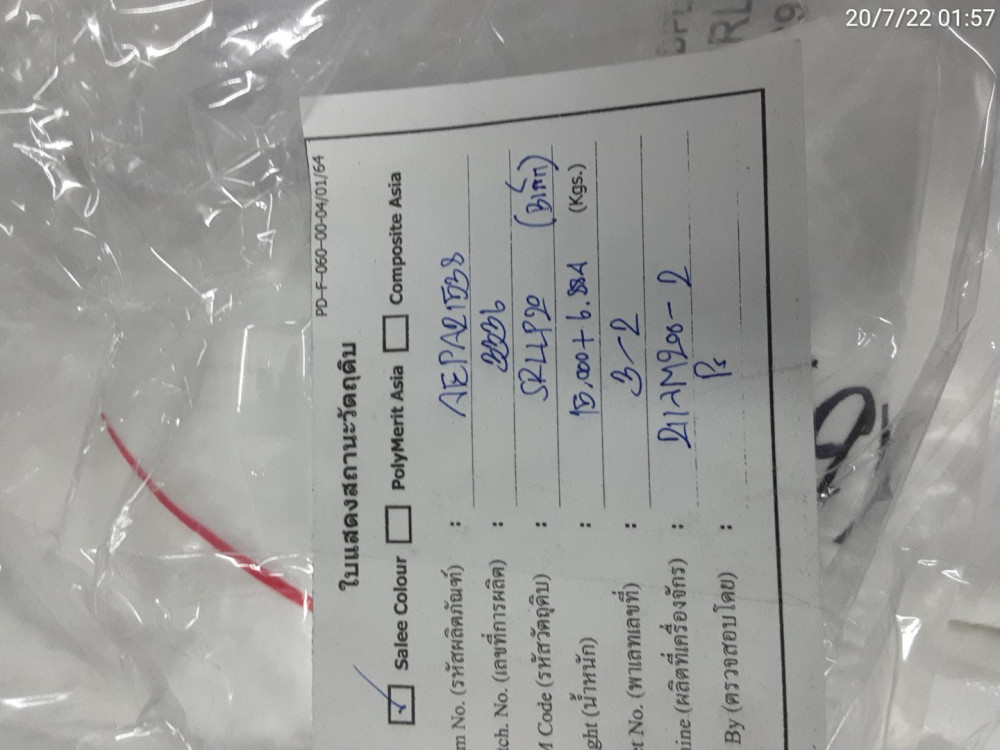 20/7/22 01:57
PD-F-060-00-04/01/64
ใบแสดงสถานะวัตถุดิบ
Salee Colour PolyMerit Asia Composite Asia
m No. (รหัสผลิตภัณฑ์) : AEPA21538
tch. No. (เลขที่การผลิต) : 3336
M Code (รหัสวัตถุดิบ) : SRLLP20
ght (น้ำหนัก) : (Kgs.)
t No. (พาเลทเลขที่) : 3-2
hine (ผลิตที่เครื่องจักร) :
By (ตรวจสอบโดย) :